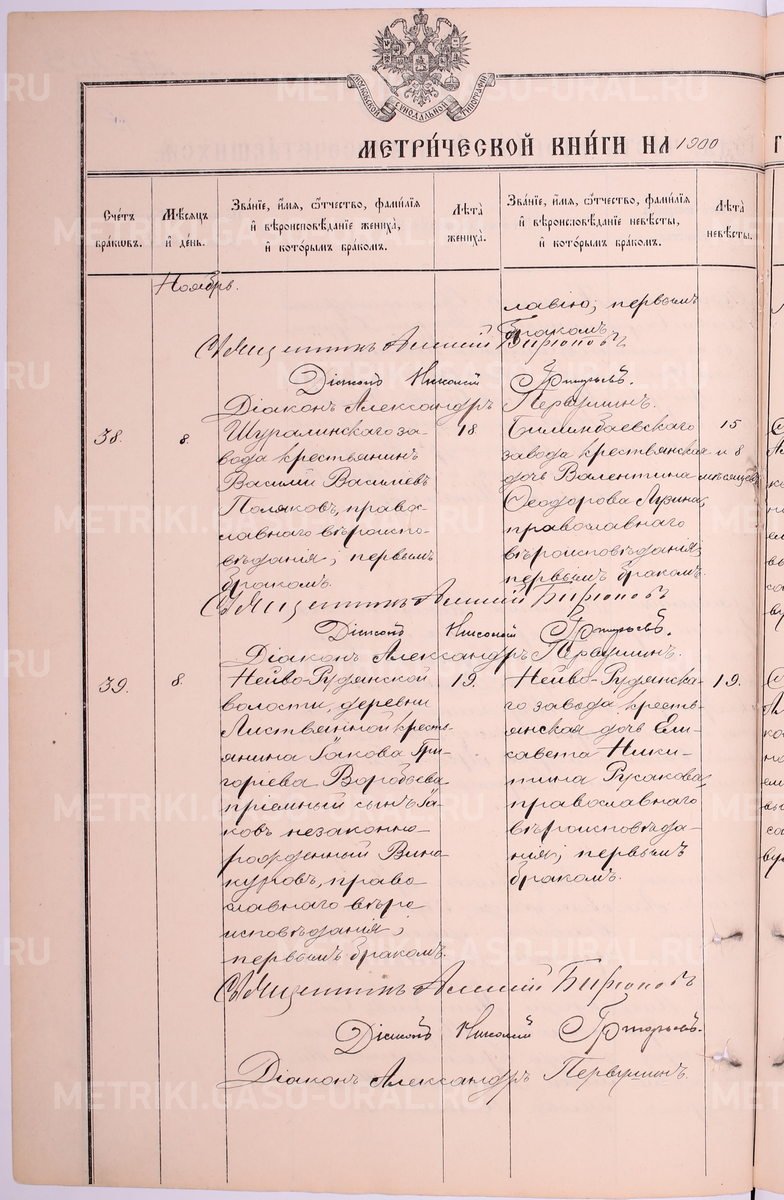 МОСКОВСКОЙ СѴНОДАЛЬНОЙ ТИПОГРАФІИ
МЕТРИ́ЧЕСКОЙ КНИ́ГИ НА 1900 Г
Счетъ браковъ.
Мѣсяцъ и день.
Званіе, имя, отчество, фамилія и вѣроисповѣданіе жениха, и которымъ бракомъ.
Лѣта жениха.
Званіе, имя, отчество, фамилія и вѣроисповѣданіе невѣсты, и которымъ бракомъ.
Лѣта невѣсты.
Ноябрь.
славію; первымъ
бракомъ.
Священникъ Алексій Бирюковъ
Діаконъ Николай Григорьевъ.
Діаконъ Александръ Первушинъ.
38.
8.
Шуралинскаго за-
вода крестьянинъ
Василій Васильевъ
Поляковъ, право-
славнаго вѣроиспо-
вѣданія; первымъ
бракомъ.
18
Билимбаевскаго
завода крестьянская
дочь Валентина
Ѳеодорова Лузина,
православнаго
вѣроисповѣданія;
первымъ бракомъ.
15
и 8
мѣсяцевъ
Священникъ Алексій Бирюковъ
Діаконъ Николай Григорьевъ.
Діаконъ Александръ Первушинъ.
39.
8.
Нейво-Рудянской
волости, деревни
Листвянной кресть-
янина Іакова Гри-
горіева Воробьева
пріемный сынъ Іа-
ковъ незаконно-
рожденный Вино
куровъ, право-
славнаго вѣро
исповѣданія;
первымъ бракомъ.
19.
Нейво-Рудянска-
го завода кресть-
янская дочь Ели-
савета Ники-
тина Русакова,
православнаго
вѣроисповѣда-
нія; первымъ
бракомъ.
19.
Священникъ Алексій Бирюковъ
Діаконъ Николай Григорьевъ.
Діаконъ Александръ Первушинъ.
METRIKI.GASU-URAL.RU